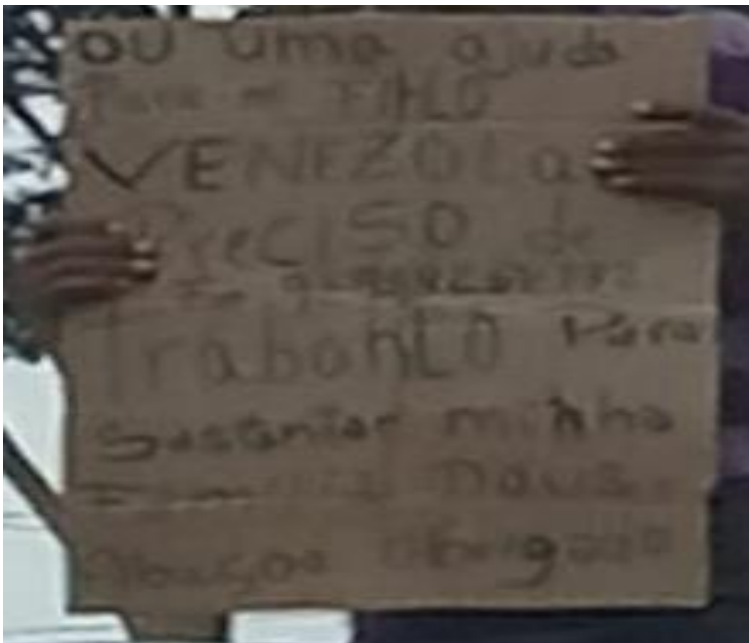 OU uma ajuda
Para mi FIHLO
VENEZOLa
PreCISO de
TrabahLO Para
Sustentar minha
Familia Deus
abençoe obrigado